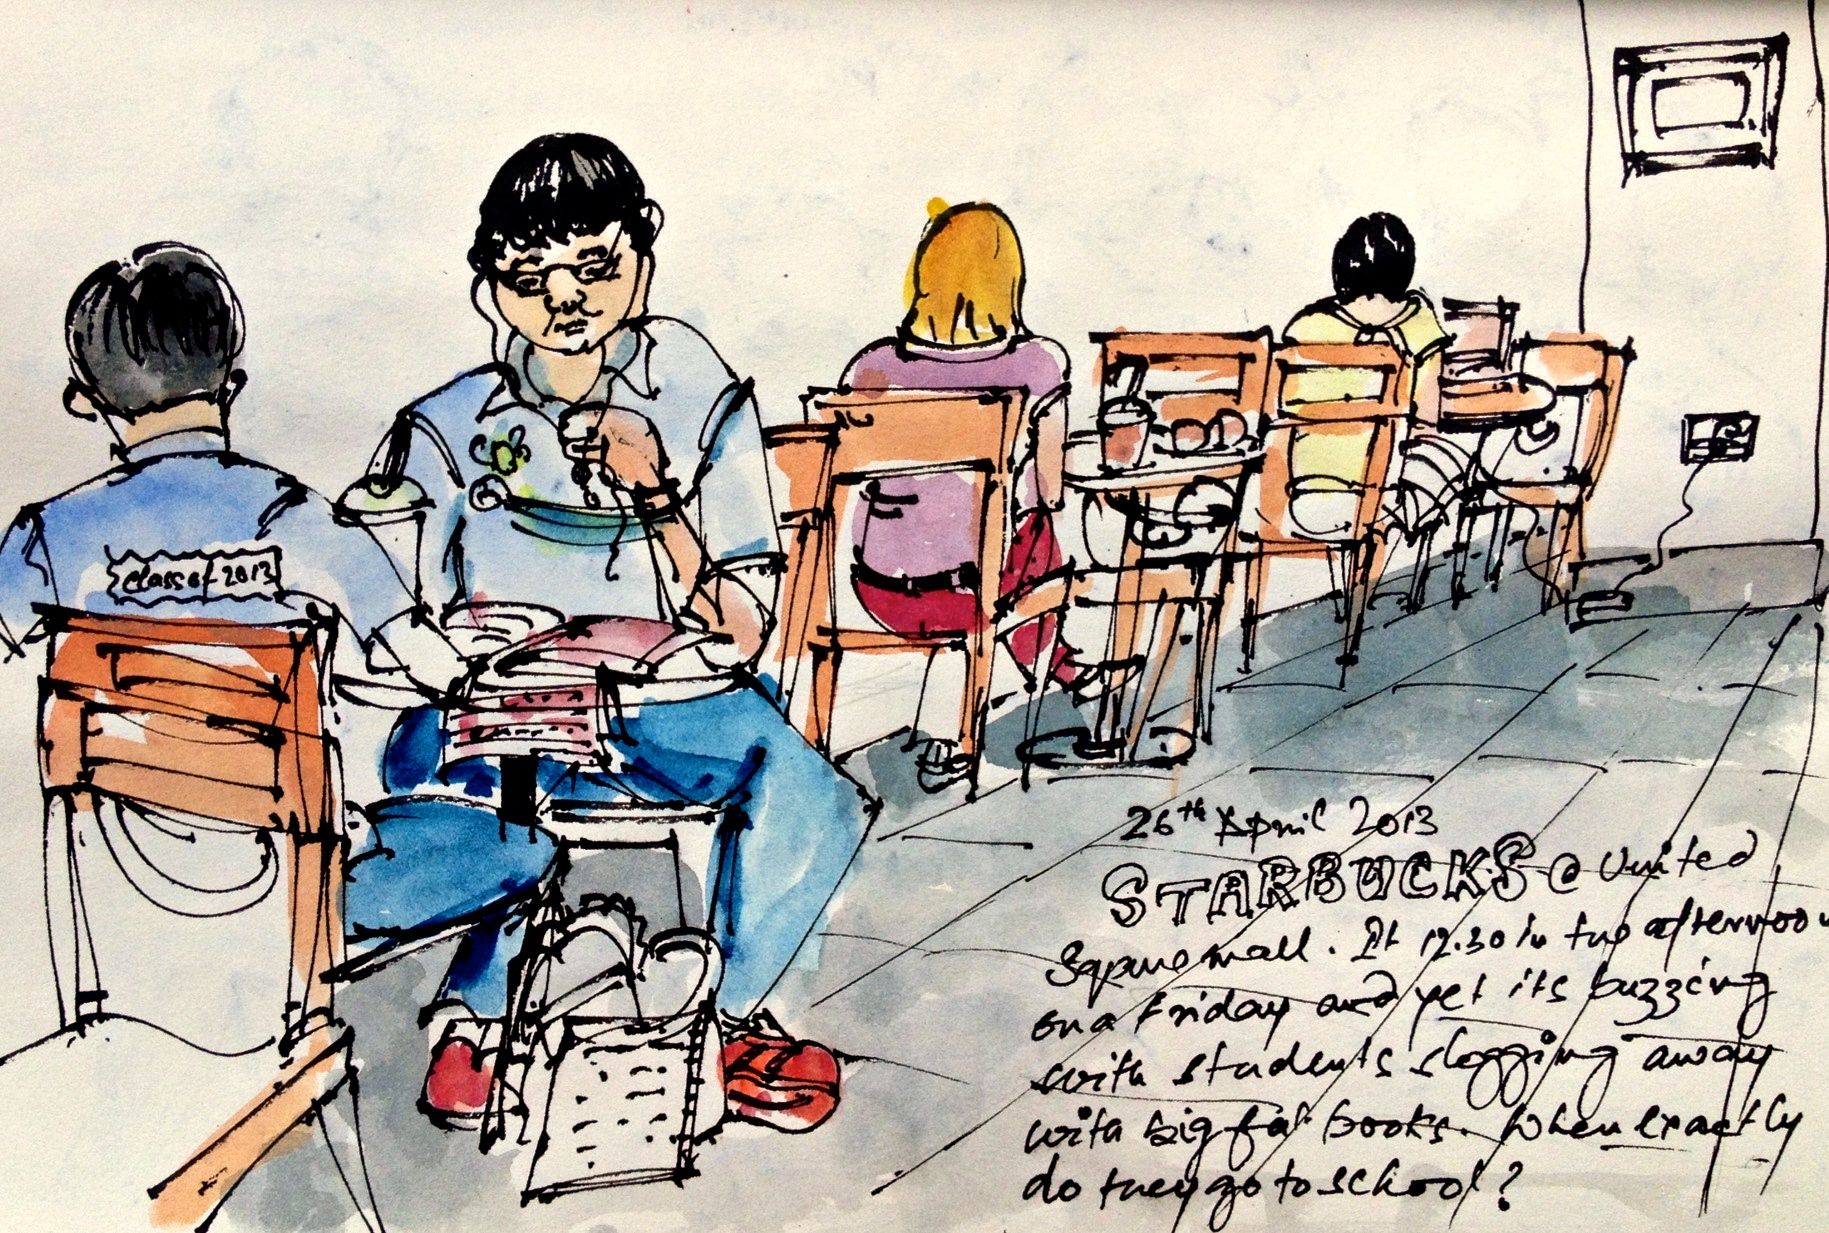 class of 2013
26th April 2013
STARBUCKS @ United
Square mall. At 12.30 in the afternoon
on a Friday and yet its buzzing
with students slogging away
with big fat books. When exactly
do they go to school?